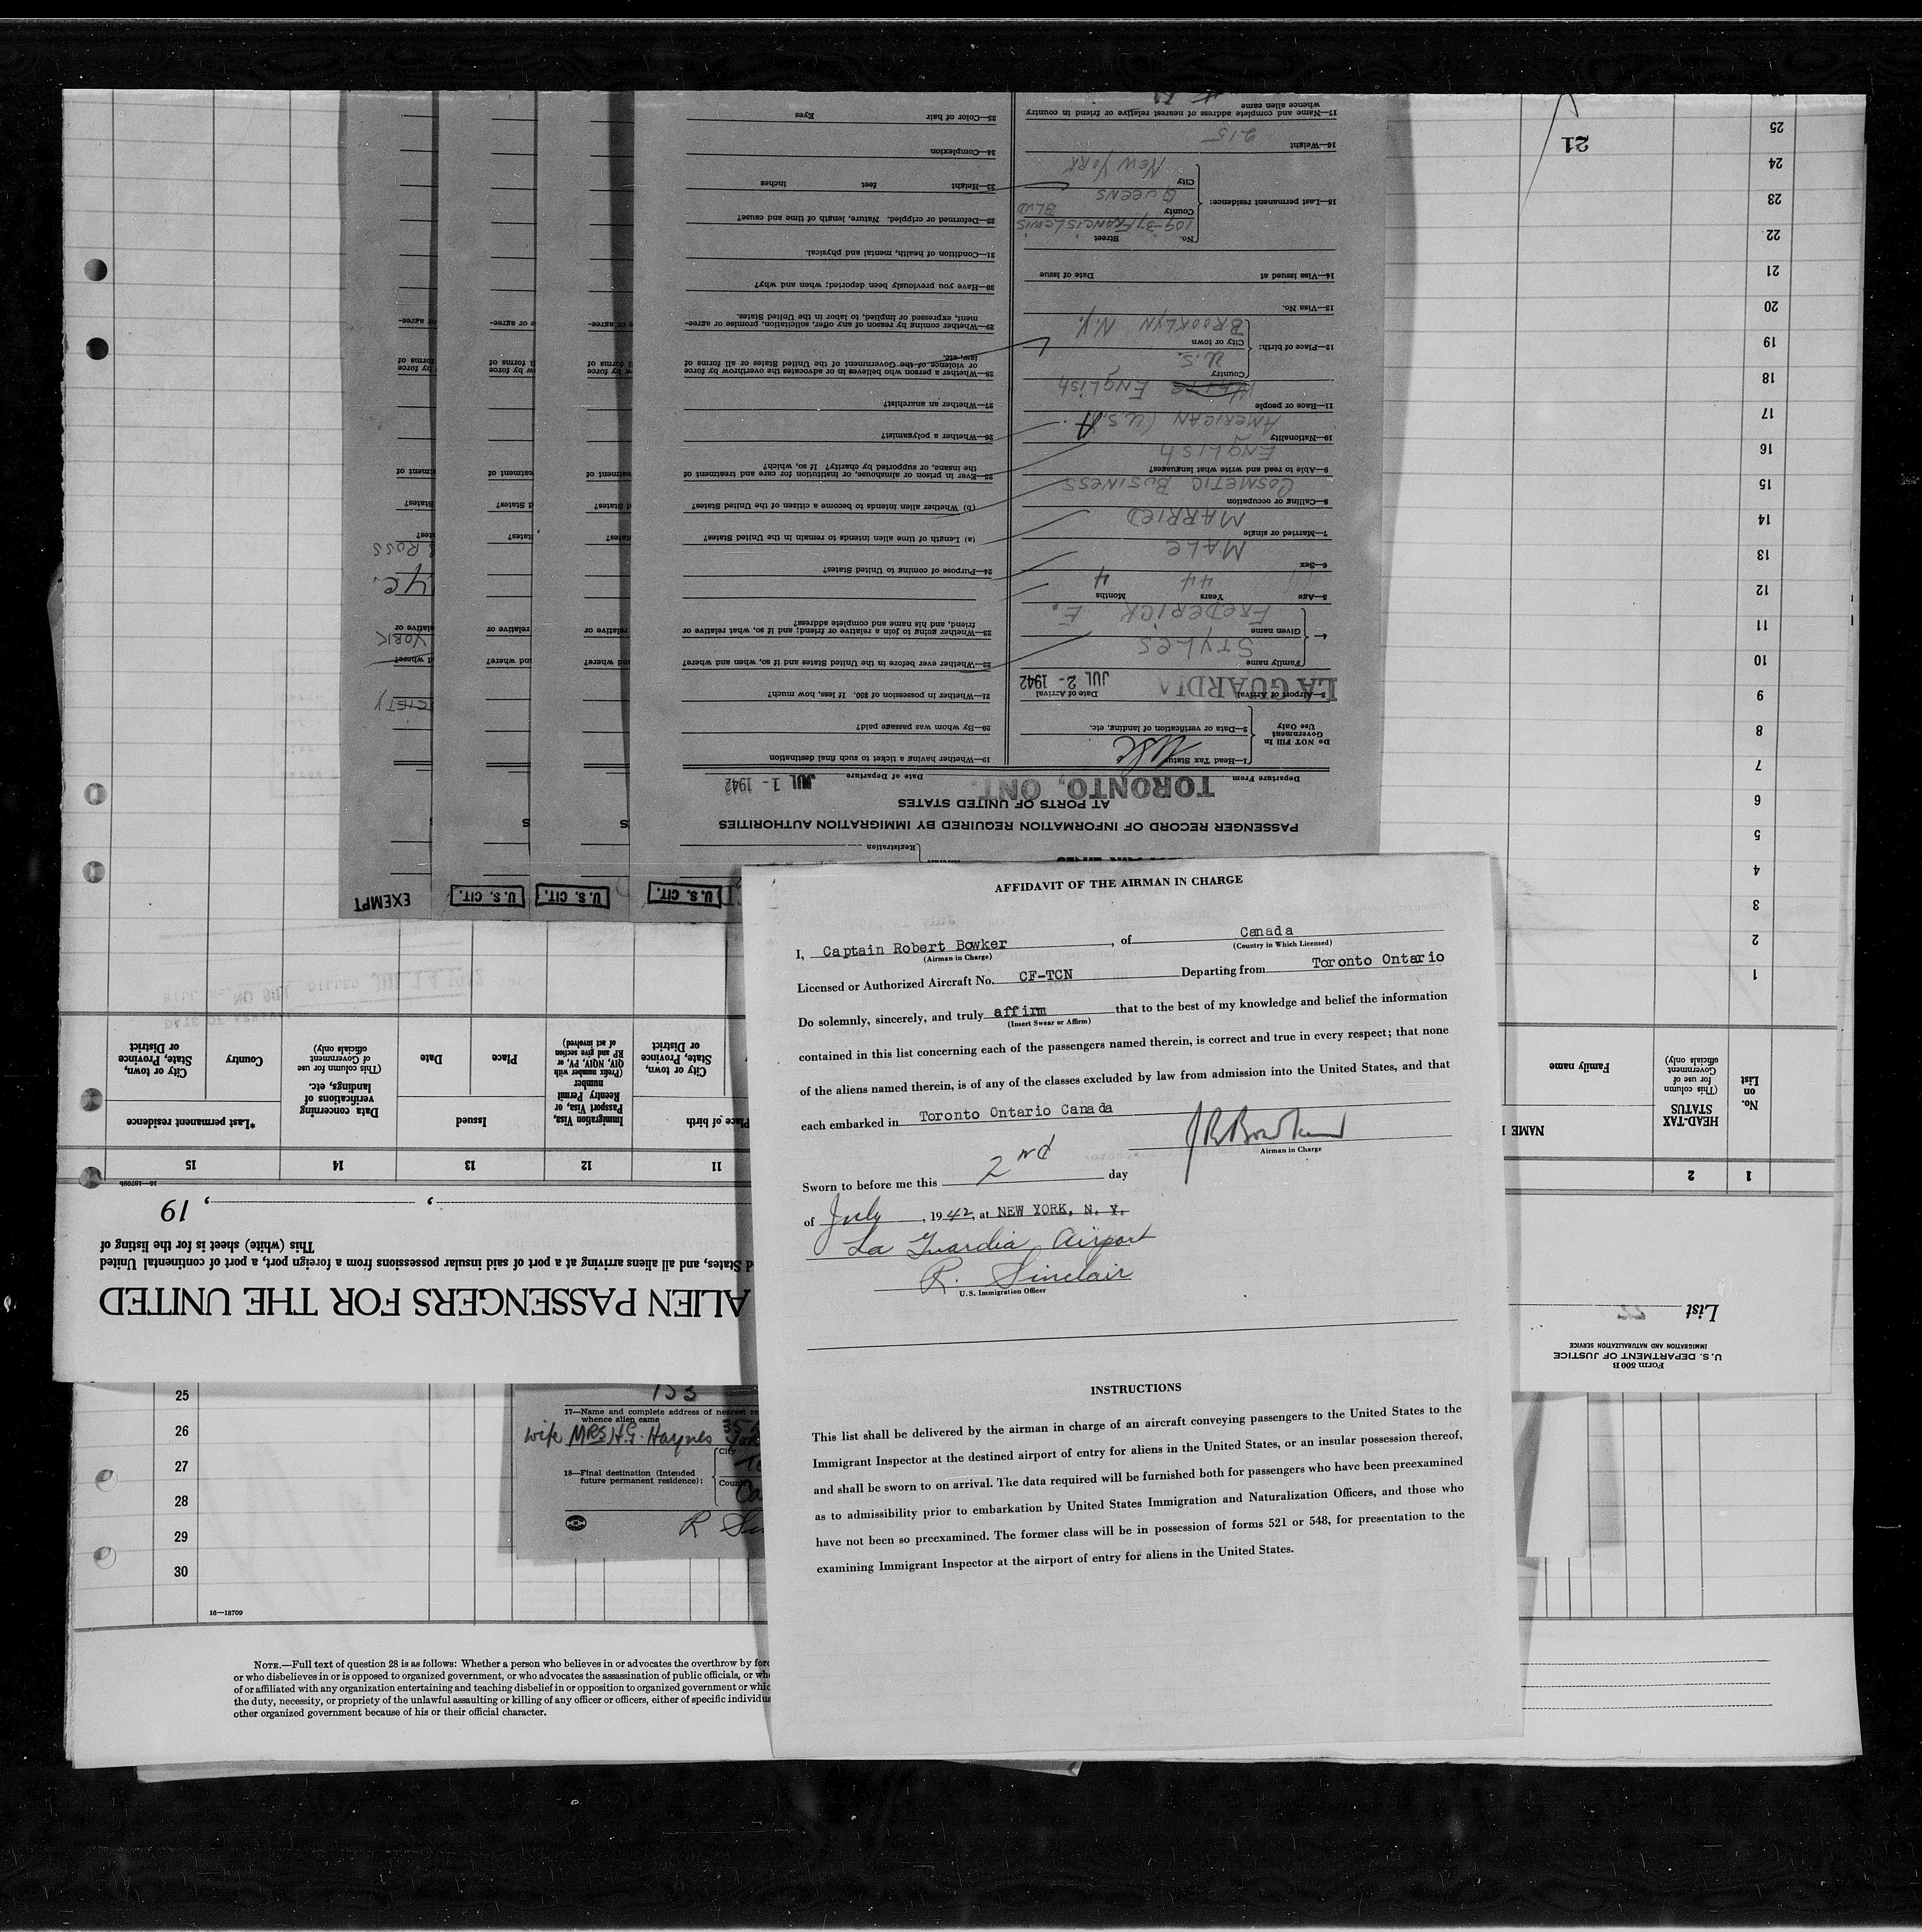 AFFIDAVIT OF THE AIRMAN IN CHARGE
I, Captain Robert Bowker, of Canada
(Airman in Charge) (Country in Which Licensed)
Licensed or Authorized Aircraft No. CF-TCN Departing from Toronto Ontario
Do solemnly, sincerely, and truly affirm that to the best of my knowledge and belief the information
(Insert Swear or Affirm)
contained in this list concerning each of the passengers named therein, is correct and true in every respect; that none
of the aliens named therein, is of any of the classes excluded by law from admission into the United States, and that
each embarked in Toronto Ontario Canada
J R Bowker
Airman in Charge
Sworn to before me this 2nd day
of July, 1942, at NEW YORK, N. Y.
La Guardia Airport
R. Sinclair
U.S. Immigration Officer
INSTRUCTIONS
This list shall be delivered by the airman in charge of an aircraft conveying passengers to the United States to the
Immigrant Inspector at the destined airport of entry for aliens in the United States, or an insular possession thereof,
and shall be sworn to on arrival. The data required will be furnished both for passengers who have been preexamined
as to admissibility prior to embarkation by United States Immigration and Naturalization Officers, and those who
have not been so preexamined. The former class will be in possession of forms 521 or 548, for presentation to the
examining Immigrant Inspector at the airport of entry for aliens in the United States.
EXEMPT
U. S. CIT.
U. S. CIT.
U. S. CIT.
Registration
PASSENGER RECORD OF INFORMATION REQUIRED BY IMMIGRATION AUTHORITIES
AT PORTS OF UNITED STATES
Departure From TORONTO, ONT. Date of Departure JUL 1 - 1942
Do NOT Fill In Government Use Only
1—Head Tax Status USC
2—Data or verification of landing, etc.
3—Airport of Arrival LA GUARDIA Date of Arrival JUL 2 - 1942
4— Family name STYLES
Given name FREDERICK E.
5—Age Years 44 Months 4
6—Sex MALE
7—Married or single MARRIED
8—Calling or occupation COSMETIC BUSINESS
9—Able to read and write what languages? ENGLISH
10—Nationality AMERICAN (U.S.A.
11—Race or people White ENGLISH
12—Place of birth: Country U.S.
City or town BROOKLYN N.Y.
13—Visa No.
14—Visa issued at Date of issue
15—Last permanent residence: No. Street 109-37 FRANCIS LEWIS BLVD
County QUEENS
City NEW YORK
16—Weight 215
17—Name and complete address of nearest relative or friend in country
whence alien came
19—Whether having a ticket to such final destination
20—By whom was passage paid?
21—Whether in possession of $50. If less, how much?
22—Whether ever before in the United States and if so, when and where?
23—Whether going to join a relative or friend; and if so, what relative or
friend, and his name and complete address?
24—Purpose of coming to United States?
(a) Length of time alien intends to remain in the United States?
(b) Whether alien intends to become a citizen of the United States?
25—Ever in prison or almshouse, or institution for care and treatment of
the insane, or supported by charity? If so, which?
26—Whether a polygamist?
27—Whether an anarchist?
28—Whether a person who believes in or advocates the overthrow by force
or violence of the Government of the United States or all forms of
law, etc.
29—Whether coming by reason of any offer, solicitation, promise or agree-
ment, expressed or implied, to labor in the United States.
30—Have you previously been deported; when and why?
31—Condition of health, mental and physical.
32—Deformed or crippled. Nature, length of time and cause?
33—Height feet inches
34—Complexion
35—Color of hair Eyes
Form 500 B
U. S. DEPARTMENT OF JUSTICE
IMMIGRATION AND NATURALIZATION SERVICE
List 22
ALIEN PASSENGERS FOR THE UNITED
d States, and all aliens arriving at a port of said insular possessions from a foreign port, a port of continental United
This (white) sheet is for the listing of
, , 19
16—18709b
1 2 11 12 13 14 15
No. on List
HEAD-TAX STATUS
(This column for use of Government officials only)
NAME
Family name
Place of birth
City or town, State, Province or District
Immigration Visa, Passport Visa, or Reentry Permit number
(Prefix number with QIV, NQIV, PV, or RP and give section of act involved)
Issued
Place
Date
Data concerning verifications of landings, etc.
(This column for use of Government officials only)
*Last permanent residence
Country
City or town, State, Province or District
1
2
3
4
5
6
7
8
9
10
11
12
13
14
15
16
17
18
19
20
21
22
23
24
25
21
153
17—Name and complete address of nearest re
whence alien came
wife MRS H.G. Haynes
18—Final destination (Intended
future permanent residence):
City
Coun
R Sin
25
26
27
28
29
30
16—18709
NOTE.—Full text of question 28 is as follows: Whether a person who believes in or advocates the overthrow by forc
or who disbelieves in or is opposed to organized government, or who advocates the assassination of public officials, or wh
of or affiliated with any organization entertaining and teaching disbelief in or opposition to organized government or whic
the duty, necessity, or propriety of the unlawful assaulting or killing of any officer or officers, either of specific individua
other organized government because of his or their official character.